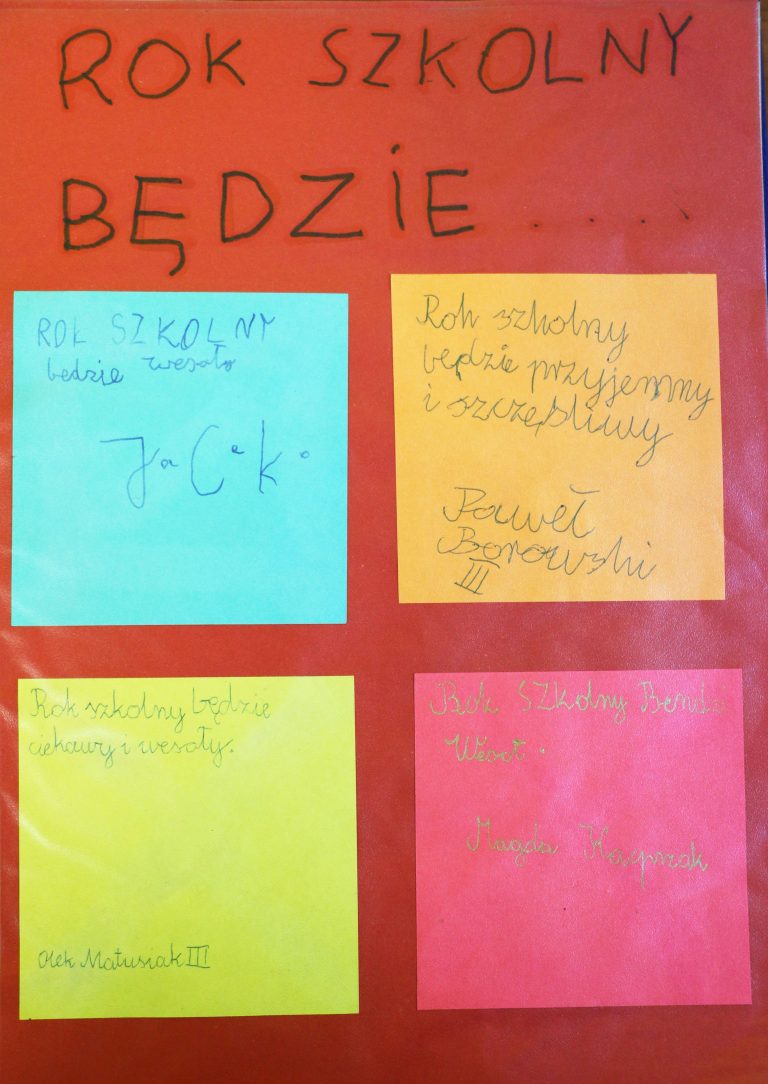 ROK SZKOLNY
BĘDZIE ....
ROK SZKOLNY
będzie wesoło
JaCek.
Rok szkolny
będzie przyjemny
i szczęśliwy
Paweł
Borowski
III
Rok szkolny będzie
ciekawy i wesoły.
Olek Matusiak III
SZkolny
Magda Kacprzak